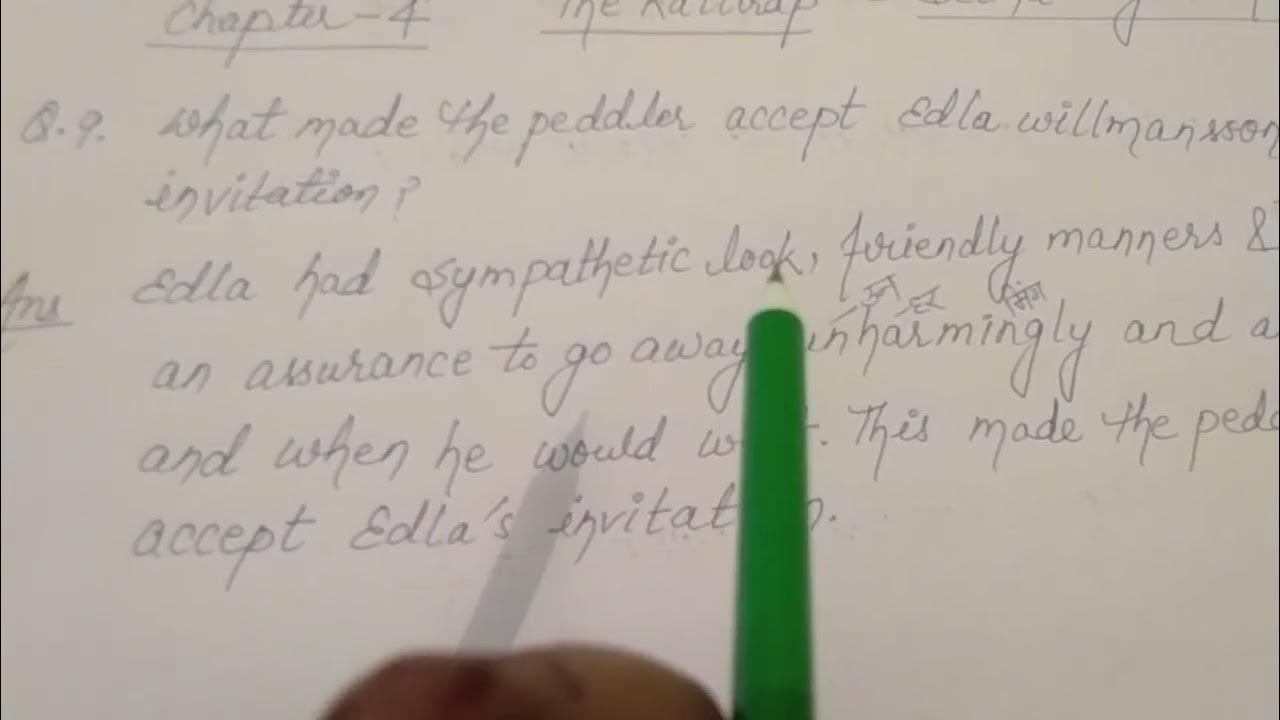 Chapter - 4 The Rattrap
Q.9. What made the peddler accept Edla willmansson
invitation?
Ans Edla had sympathetic look, friendly manners &
an assurance to go away unharmingly and a
and when he would w. This made the pedd
accept Edla's invitat n.